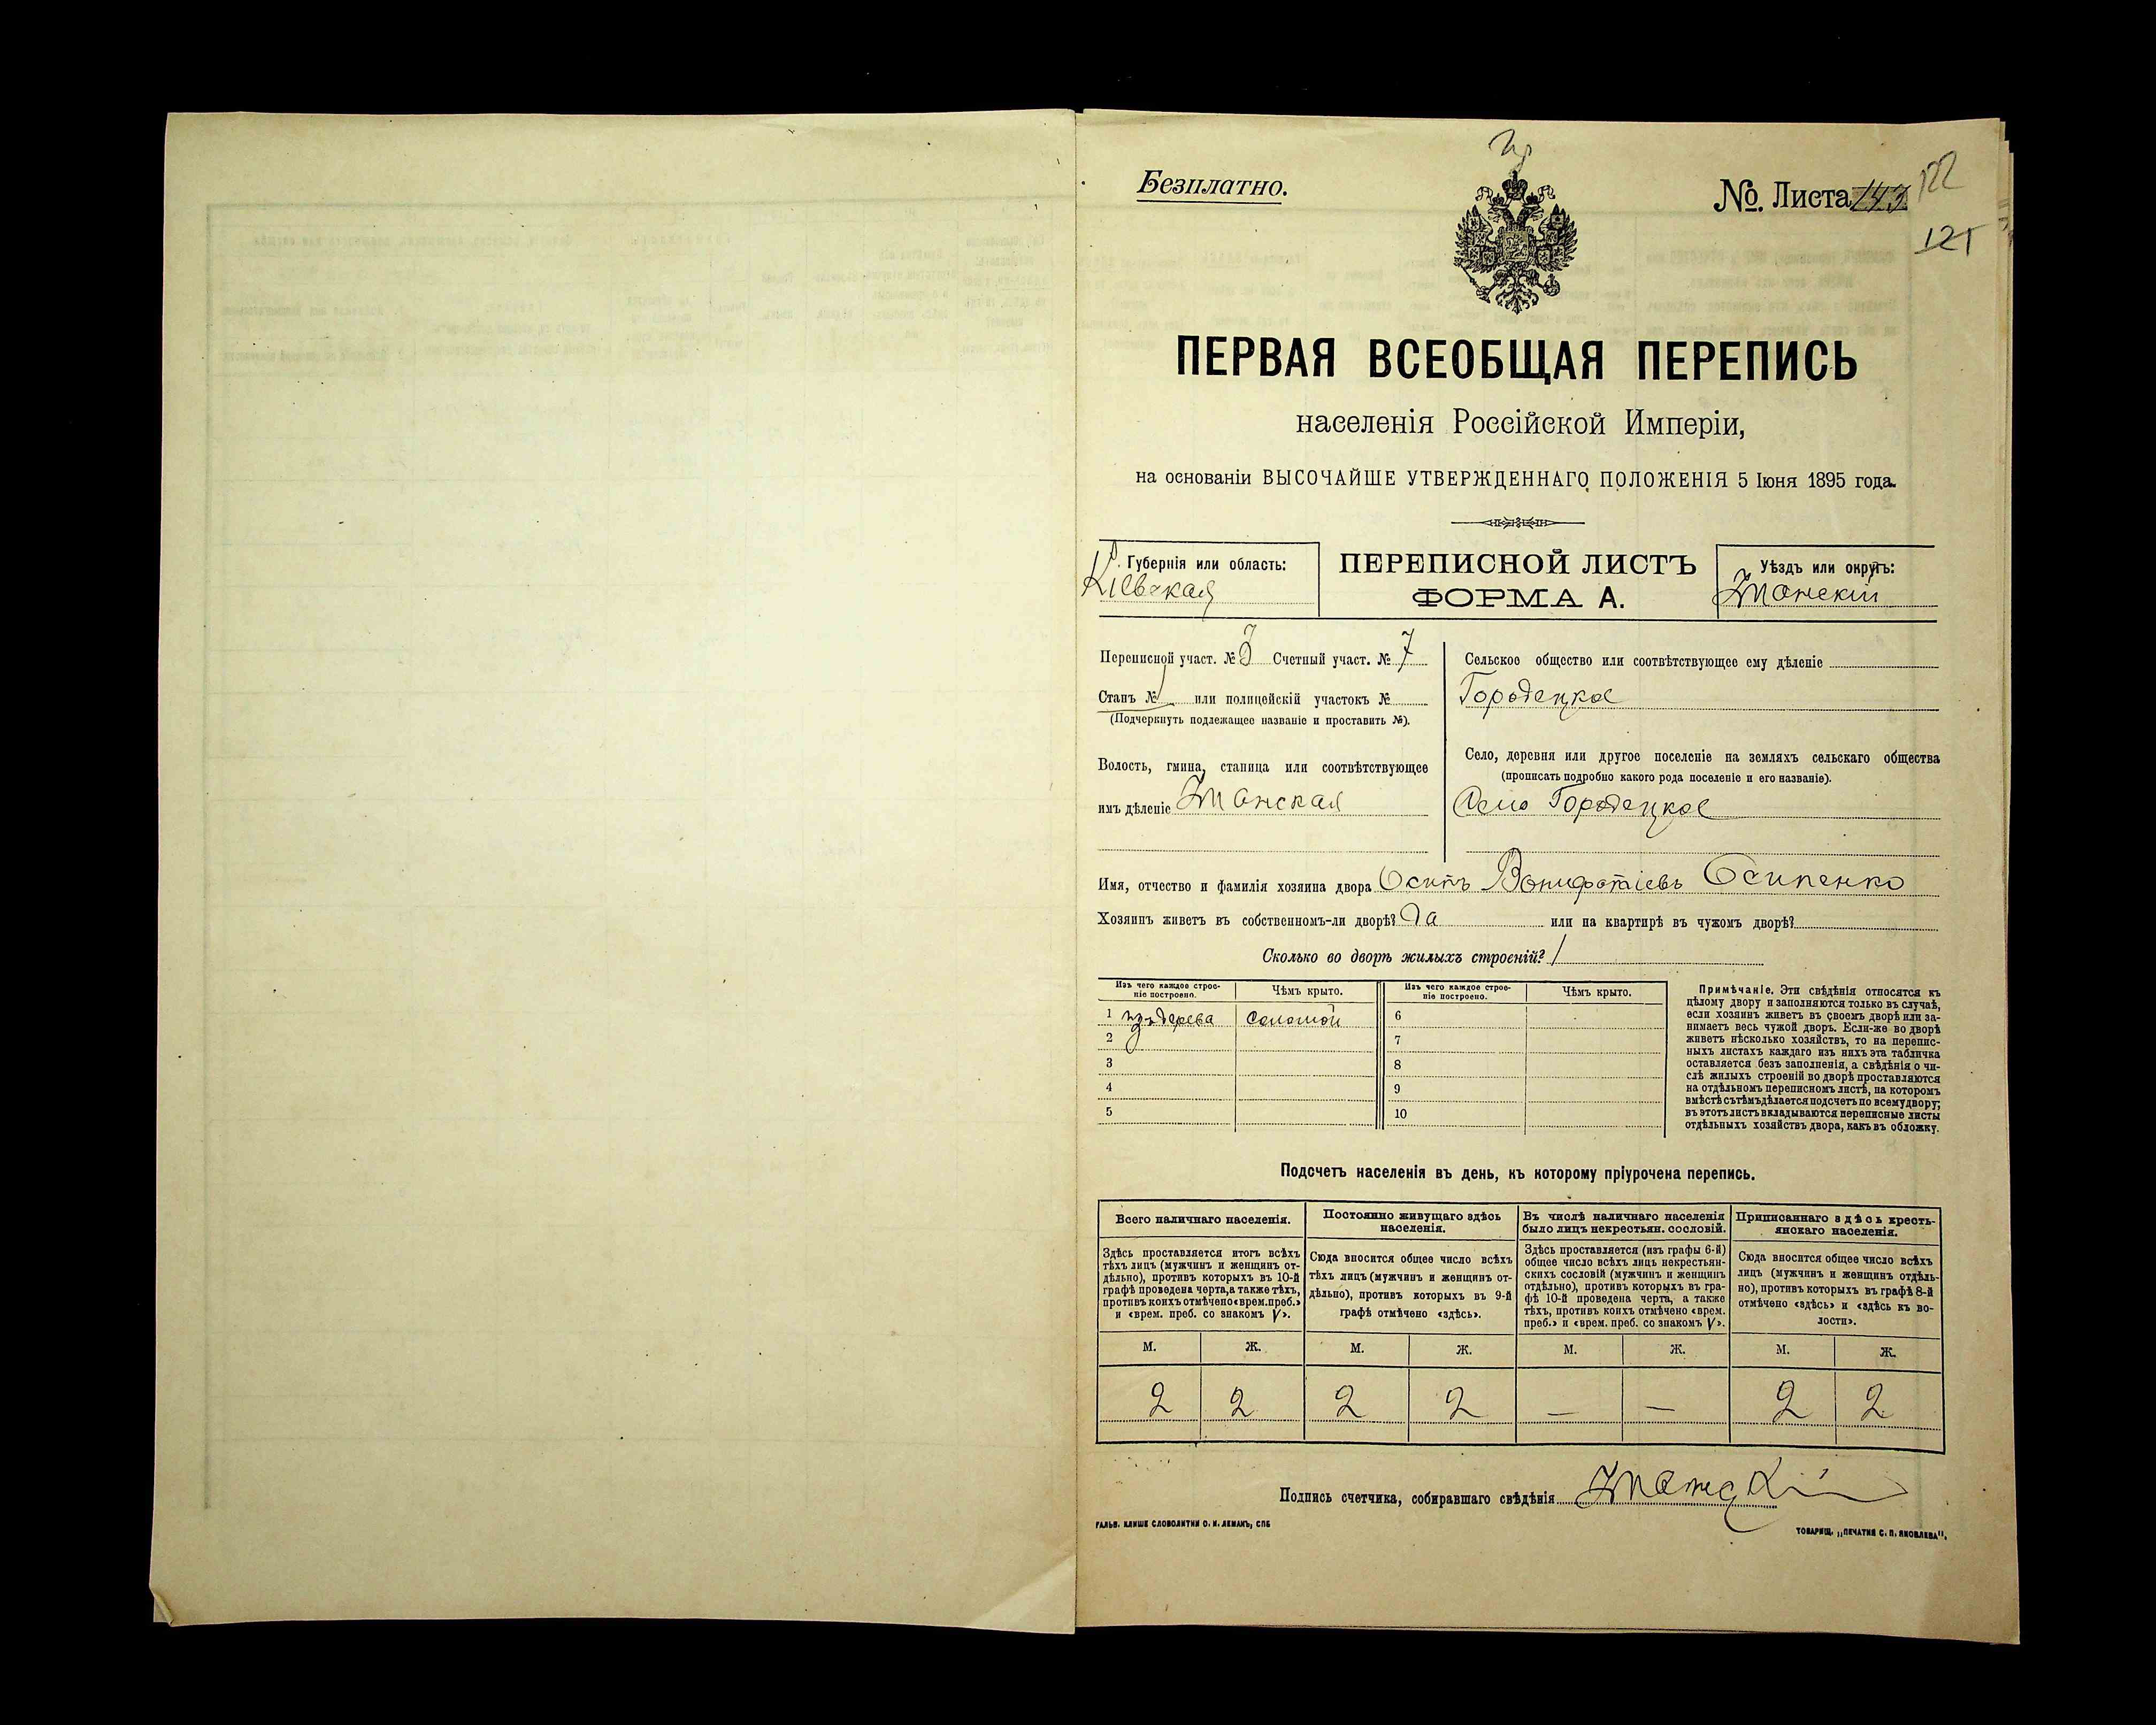 Безплатно.
№. Листа 143
122
121
ПЕРВАЯ ВСЕОБЩАЯ ПЕРЕПИСЬ
населенія Россійской Имперіи,
на основаніи ВЫСОЧАЙШЕ УТВЕРЖДЕННАГО ПОЛОЖЕНІЯ 5 Іюня 1895 года.
Губернія или область:
Кіевская
ПЕРЕПИСНОЙ ЛИСТЪ
ФОРМА А.
Уѣздъ или округъ:
Уманскій
Переписной участ. № 3 Счетный участ. № 7
Станъ № 1 или полицейскій участокъ №
(Подчеркнуть подлежащее названіе и проставить №).
Волость, гмина, станица или соотвѣтствующее
имъ дѣленіе Уманская
Сельское общество или соотвѣтствующее ему дѣленіе
Городецкое
Село, деревня или другое поселеніе на земляхъ сельскаго общества
(прописать подробно какого рода поселеніе и его названіе).
Село Городецкое
Имя, отчество и фамилія хозяина двора Осипъ Вонифатіевъ Осипенко
Хозяинъ живетъ въ собственномъ-ли дворѣ? Да или на квартирѣ въ чужомъ дворѣ?
Сколько во дворѣ жилыхъ строеній? 1
Изъ чего каждое строе-
ніе построено.
Чѣмъ крыто.
Изъ чего каждое строе-
ніе построено.
Чѣмъ крыто.
1 изъ дерева соломой 6
2 7
3 8
4 9
5 10
Примѣчаніе. Эти свѣдѣнія относятся къ
цѣлому двору и заполняются только въ случаѣ,
если хозяинъ живетъ въ своемъ дворѣ или за-
нимаетъ весь чужой дворъ. Если-же во дворѣ
живетъ нѣсколько хозяйствъ, то на перепис-
ныхъ листахъ каждаго изъ нихъ эта табличка
оставляется безъ заполненія, а свѣдѣнія о чи-
слѣ жилыхъ строеній во дворѣ проставляются
на отдѣльномъ переписномъ листѣ, на которомъ
вмѣстѣ съ тѣмъ дѣлается подсчетъ по всему двору;
въ этотъ листъ вкладываются переписные листы
отдѣльныхъ хозяйствъ двора, какъ въ обложку.
Подсчетъ населенія въ день, къ которому пріурочена перепись.
Всего наличнаго населенія.
Здѣсь проставляется итогъ всѣхъ
тѣхъ лицъ (мужчинъ и женщинъ от-
дѣльно), противъ которыхъ въ 10-й
графѣ проведена черта, а также тѣхъ,
противъ коихъ отмѣчено «врем. преб.»
и «врем. преб. со знакомъ V».
Постоянно живущаго здѣсь
населенія.
Сюда вносится общее число всѣхъ
тѣхъ лицъ (мужчинъ и женщинъ от-
дѣльно), противъ которыхъ въ 9-й
графѣ отмѣчено «здѣсь».
Въ числѣ наличнаго населенія
было лицъ некрестьян. сословій.
Здѣсь проставляется (изъ графы 6-й)
общее число всѣхъ лицъ некрестьян-
скихъ сословій (мужчинъ и женщинъ
отдѣльно), противъ которыхъ въ гра-
фѣ 10-й проведена черта, а также
тѣхъ, противъ коихъ отмѣчено «врем.
преб.» и «врем. преб. со знакомъ V».
Приписаннаго здѣсь кресть-
янскаго населенія.
Сюда вносится общее число всѣхъ
лицъ (мужчинъ и женщинъ отдѣль-
но), противъ которыхъ въ графѣ 8-й
отмѣчено «здѣсь» и «здѣсь къ во-
лости».
М. Ж. М. Ж. М. Ж. М. Ж.
2 2 2 2 — — 2 2
Подпись счетчика, собиравшаго свѣдѣнія
ГАЛЬВ. КЛИШЕ СЛОВОЛИТНИ О. И. ЛЕМАНЪ, СПБ
ТОВАРИЩ. „ПЕЧАТНЯ С. П. ЯКОВЛЕВА“,